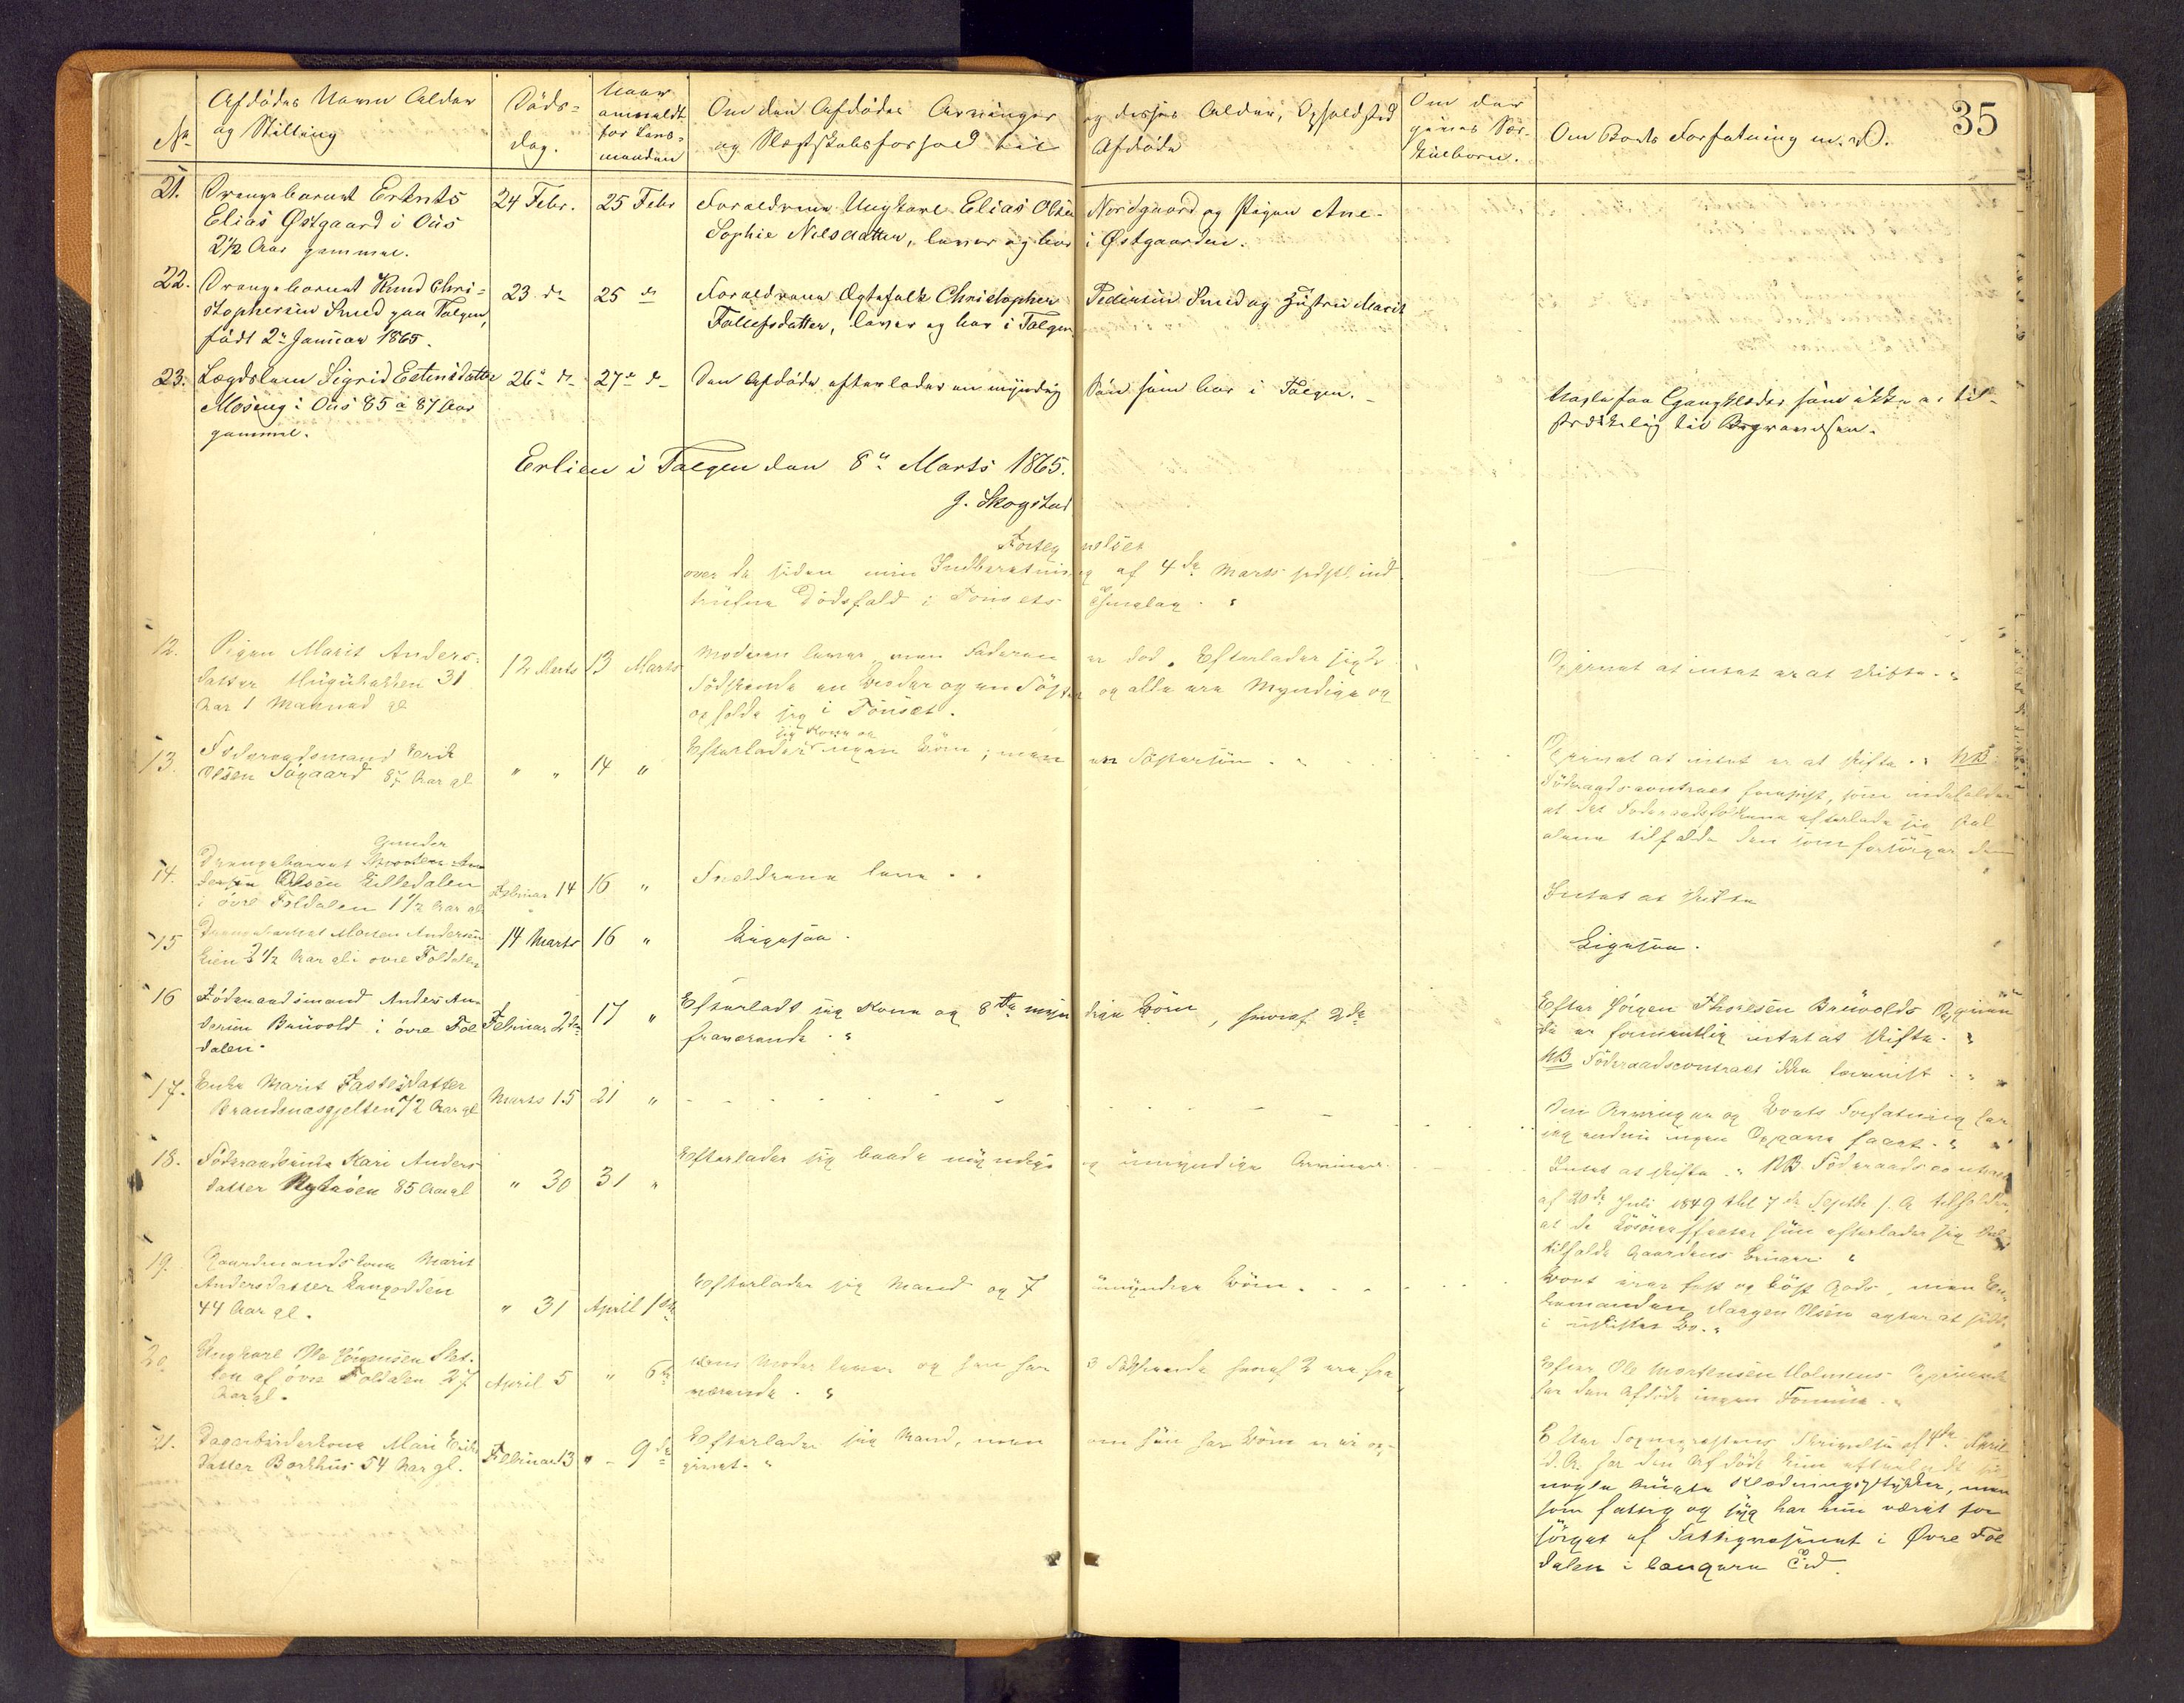 35
No
Afdødes Navn Alder
og Stilling
Døds-
dag.
Naar
anmeldt
for Lens-
manden
Om den Afdødes Arvinger og disses Alder, Opholdsted
og Slægtskabsforhold til Afdøde
Om der
gives Sær-
kuldbørn.
Om Boets Forfatning m. V.
21. Drengebarnet Estents
Elias Østgaard i Oûs
2 1/2 Aar gammel.
24 Febr. 25 Febr
Forældrene Ungkarl Elias Olsen Nordgaard og Pigen Ane
Sophie Nilsdatter, lever og boer i Østgaarden.
22. Drengebarnet Knud Chri-
stophersen Smed paa Tolgen,
født 2n Januar 1865.
23 do 25 do
Forældrene Ægtefolk Christopher Pedersen Smed og Hustru Marit
Tollefsdatter, lever og boer i Tolgen
23. Lægdslem Sigrid Estensdatter
Moseng i Oûs 85 a 87 Aar
gammel.
26de do 27de do
Den Afdøde efterlader en myndig Søn som boer i Tolgen.
Nogle faa Gangklæder som ikke er til-
strækkelig til Begravelsen.
Erlien i Tolgen den 8de Marts 1865.
J. Skogstad
Fortegnelse
over de siden min Indberetning af 4de Marts sidstl. ind
trufne Dødsfald i Tønsets Thinglag.
12. Pigen Marit Anders-
datter 31
Aar 1 Maaned gl
12 Marts 13 Marts
Moderen lever men Faderen er død. Efterlader sig 2
Sødskende en Broder og en Søster og alle ere Myndige og
opholde sig i Tønset.
Opgivet at intet er at skifte.
13. Føderaadsmand Erik
Olsen Søgaard 87 Aar gl
" " 14 "
sig Kone og
Efterlader ingen Børn; men en Søstersøn.
Opgivet at intet er at skifte. NB.
Føderaadscontract forevist, som indeholder
at det Føderaadsfolkene efterlade sig skal
alene tilfalde den som forsørger dem
14. Drengebarnet Gunder
Olsen Lilledalen
i övre Foldalen 1 1/2 Aar gl
Februar 14 16 "
Forældrene leve.
Intet at skifte
15 Drengebarnet Morten Andersen
Lien 2 1/2 Aar gl i övre Foldalen
14 Marts 16 "
Ligesaa.
Ligesaa.
16 Føderaadsmand Anders An-
dersen Brûvold i övre Fol
dalen.
Februar 2den 17 "
Efterladt sig Kone og 8te myndige Børn, hvoraf 2de
fraværende.
Efter Jörgen Thoresen Brûvolds Opgivende
er formentlig intet at skifte.
NB Føderaadscontract ikke forevist.
17. Enke Marit Jastersdatter
Brandnæsgjelten 72 Aar gl
Marts 15 21 "
Om Arvinger og Boets Forfatning har
jeg endnu ingen Opgave faaet.
18. Føderaadsenke Kari Anders
datter Nytrøen 85 Aar gl
" 30 31 "
Efterlader sig baade myndige og ûmyndige Arvinger.
Intet at skifte. NB. Føderaadscontract
af 20de Juli 1849 thl 7de Septbr s. A. tilholder
at de Løsöreffecter hun efterlader sig skal
tilfalde Gaardens Bruger.
19. Gaardmandskone Marit
Andersdatter Langodden
44 Aar gl.
" 31 April 1ste
Efterlader sig Mand og 7 ûmyndige Børn.
Boet eier fast og løst Gods, men En-
kemanden Haagen Olsen agter at sidde
i ûskiftet Bo.
20. Ungkarl Ole Jörgensen Slet-
ten af övre Foldalen 27
Aar gl.
April 5 " 6te
Hans Moder lever og han har 3 Sødskende hvoraf 2 ere fra
værende.
Efter Ole Mortensen Holmens Opgivende
har den Afdøde ingen Formue.
21. Dagarbeiderkone Mari Eriks
datter Borkhûs 54 Aar gl.
Februar 13 " 9de
Efterlader sig Mand, men om hun har Børn er ei op-
givet.
Efter Sognepræstens Skrivelse af 4de April
d. A. har den Afdøde kun efterladt sig
nogle brugte Klædningsstykker, men
som fattig og syg har hun været for
sörget af Fattigvæsenet i Övre Fol
dalen i længere Tid.